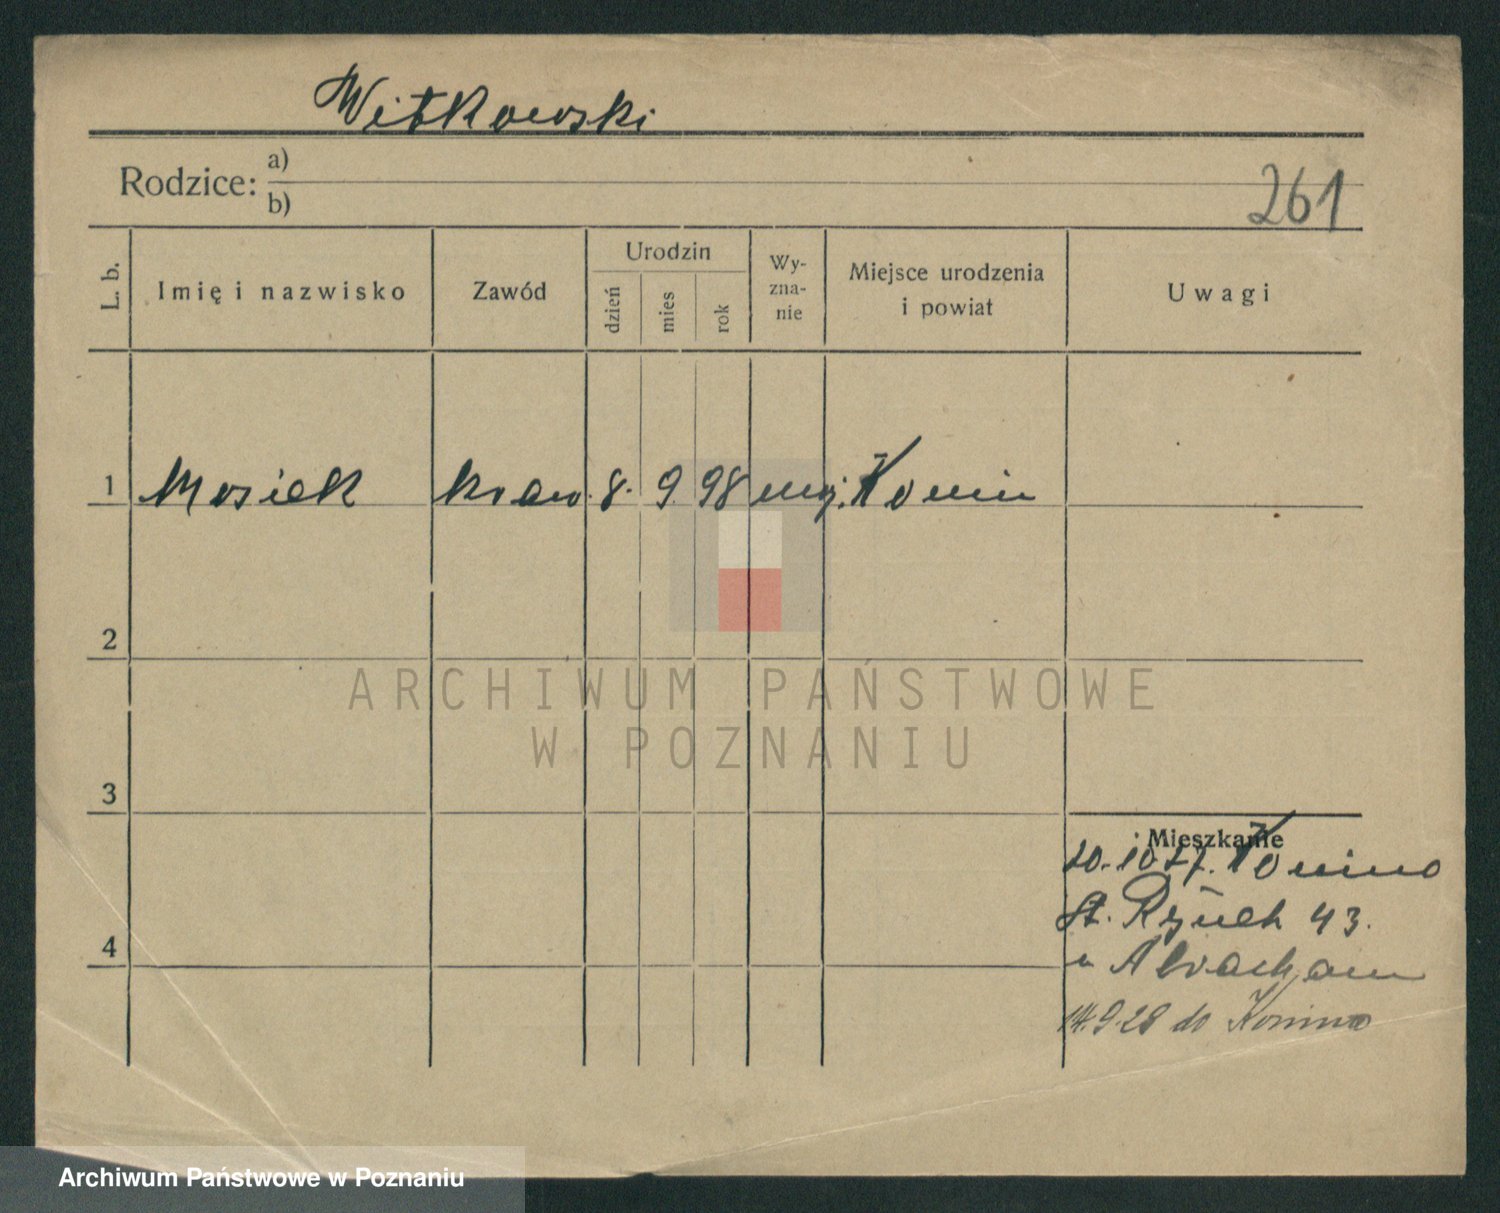 Witkowski
Rodzice: a)
b)
261
L. b. Imię i nazwisko Zawód Urodzin dzień mies rok Wy-zna-nie Miejsce urodzenia i powiat Uwagi
1 Mosiek kraw. 8. 9. 98 moj. Konin
2
3
4
Mieszkanie
20.10.27. Konina
St. Rynek 43.
u Abracham
14.9.28 do Konina
ARCHIWUM PAŃSTWOWE
W POZNANIU
Archiwum Państwowe w Poznaniu